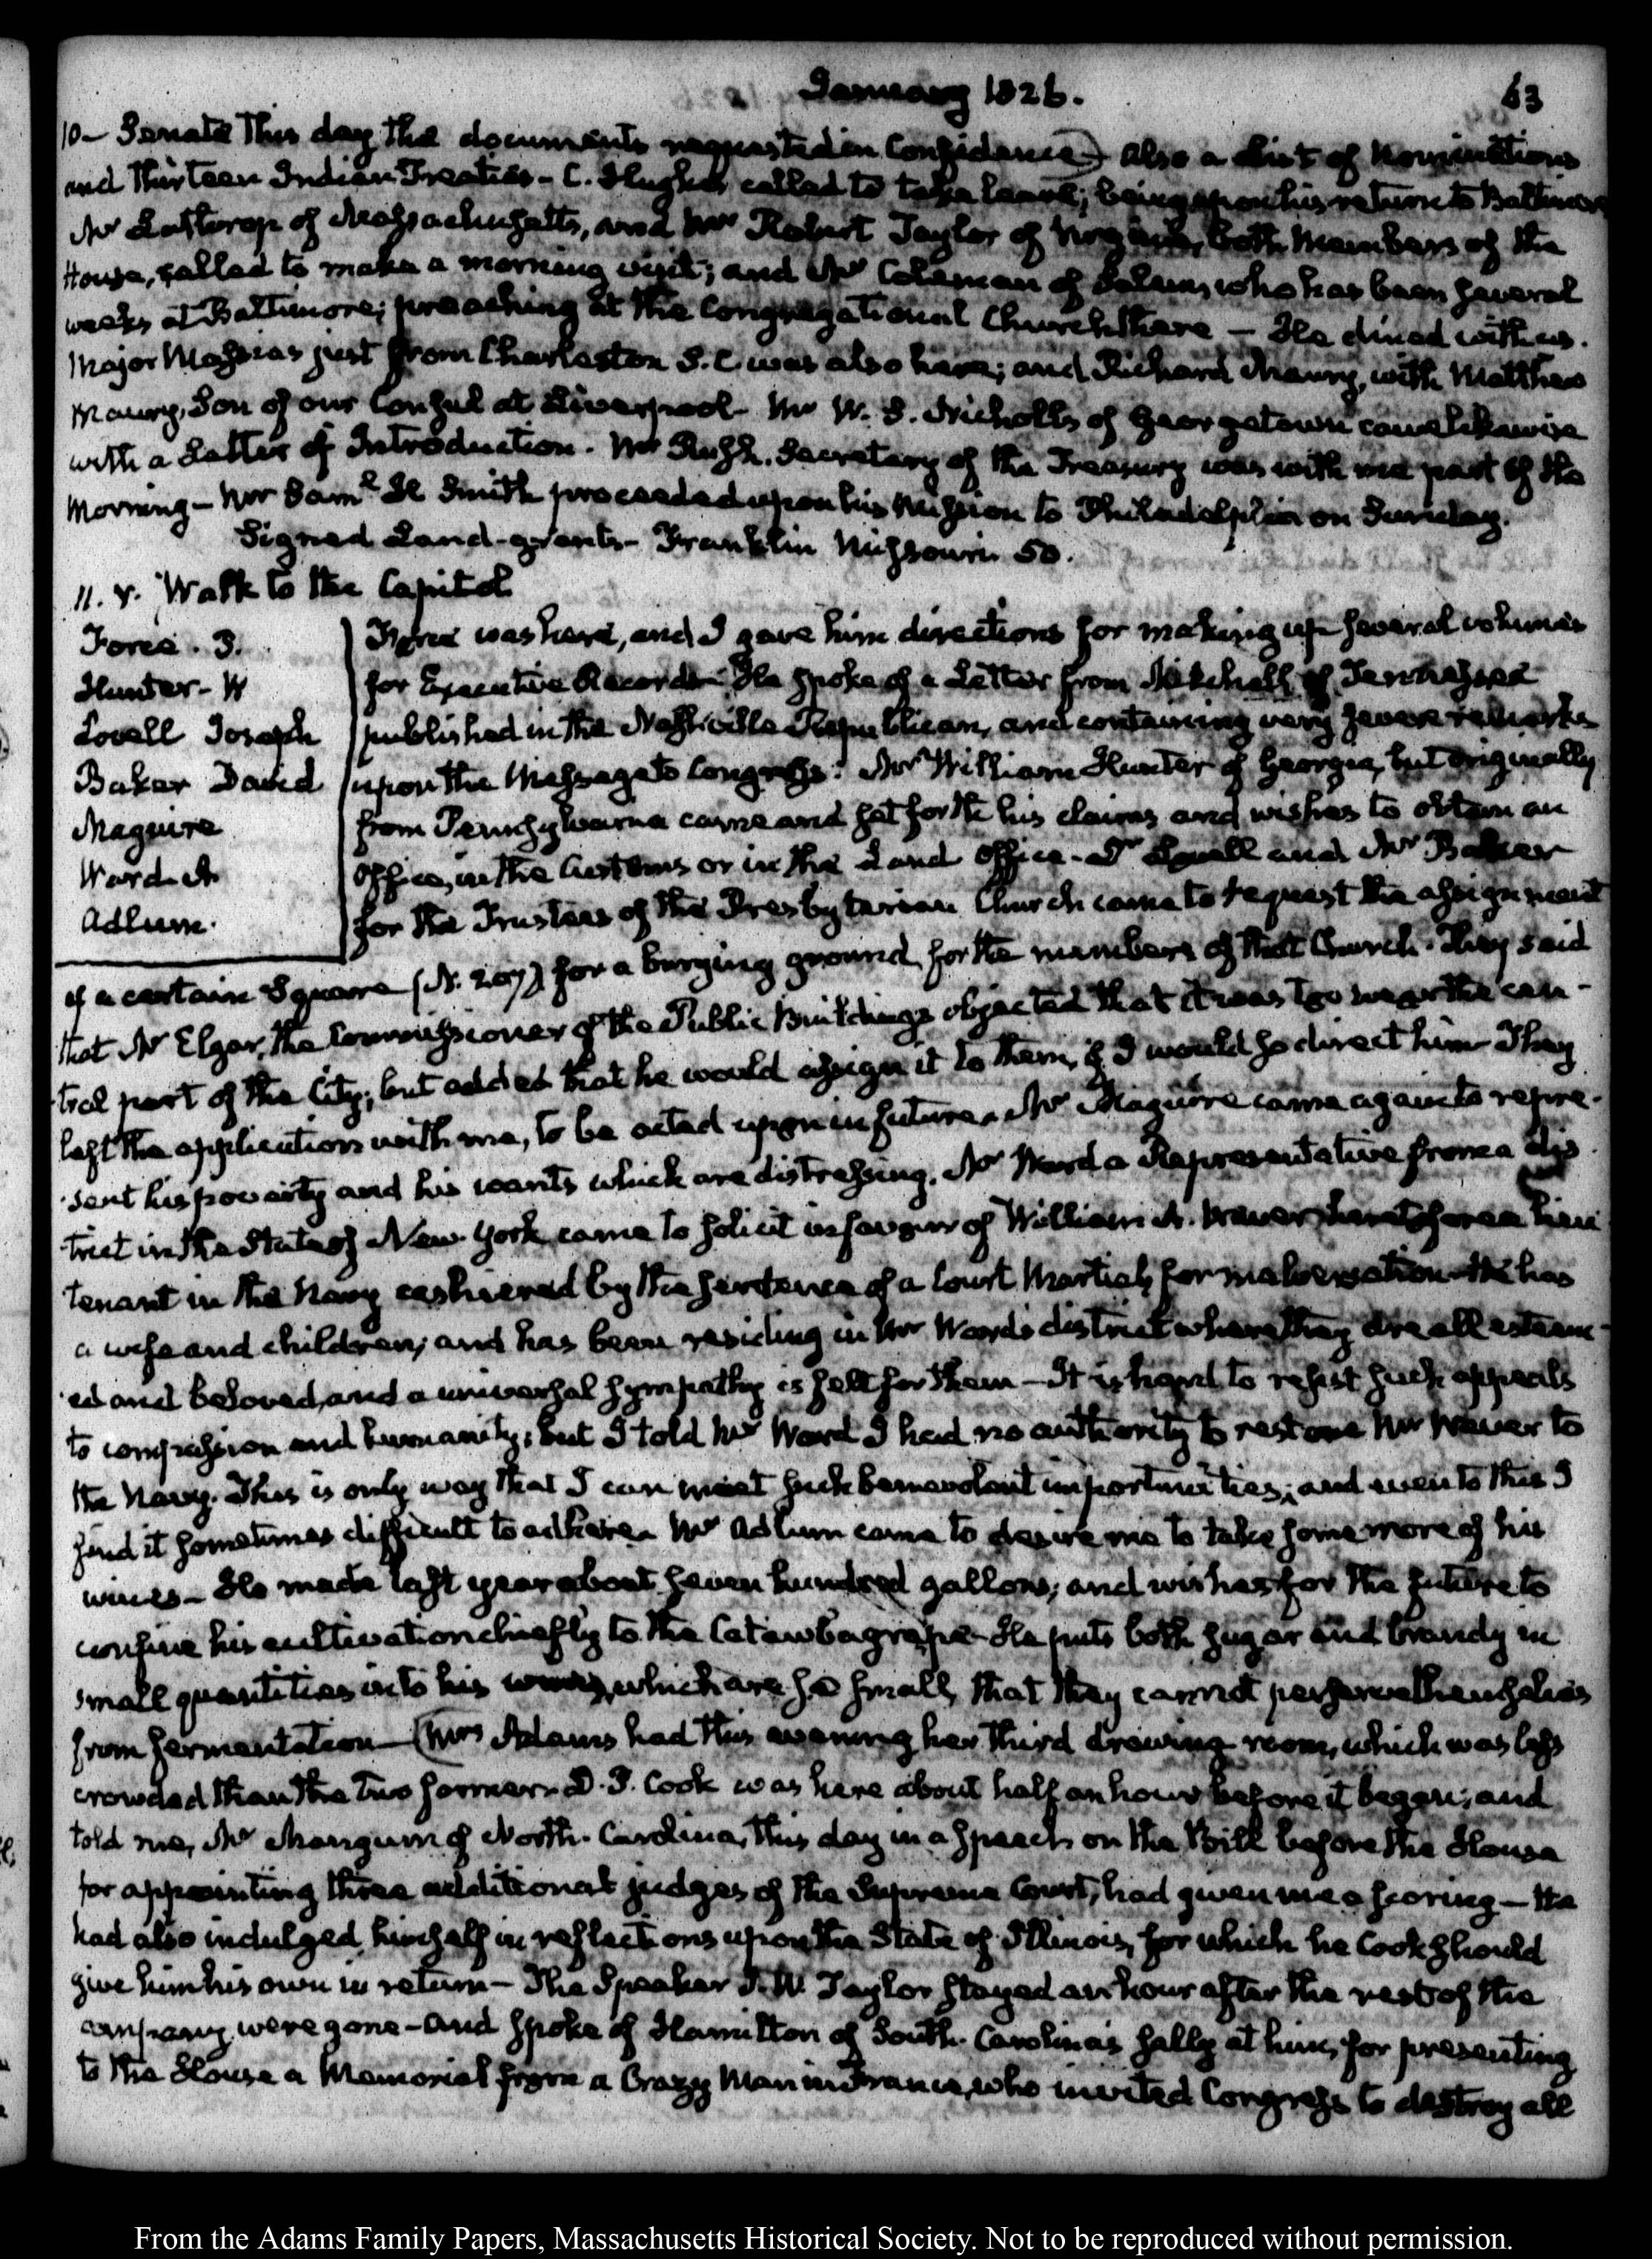 January 1826.
63
10– Senate this day the documents requested in Confidence) also a list of Nominations
and thirteen Indian Treaties – C. Hughes called to take leave; being upon his return to Baltimore
Mr Lathrop of Massachusetts, and Mr Robert Taylor of Virginia, both Members of the
House, called to make a morning visit; and Mr Coleman of Salem, who has been several
weeks at Baltimore; preaching at the Congregational Church there – He dined with us.
Major Massias just from Charleston S.C. was also here; and Richard Maury, with Matthew
Maury, Son of our Consul at Liverpool – Mr W. S. Nicholls of Georgetown came likewise
with a Letter of Introduction. Mr Rush, Secretary of the Treasury was with me part of the
morning – Mr Saml H Smith proceeded upon his Mission to Philadelphia on Sunday.
Signed Land-grants – Franklin Missouri 50.
11. V. Walk to the Capitol
Force. P.
Hunter – W
Lovell Joseph
Baker David
Maguire
Ward. A
Adlum.
Force was here, and I gave him directions for making up several volumes
for Executive Records – He spoke of a Letter from Mitchell of Tennessee
published in the Nashville Republican, and containing very severe remarks
upon the Message to Congress. Mr William Hunter of Georgia, but originally
from Pennsylvania came and set forth his claims and wishes to obtain an
Office, in the Customs or in the Land Office – Dr Lovell and Mr Baker
for the Trustees of the Presbyterian Church came to request the assignment
of a certain Square (N. 207) for a burying ground for the members of that Church. They said
that Mr Elgar, the Commissioner of the Public Buildings objected that it was too near the cen-
tral part of the City; but added that he would assign it to them, if I would so direct him – They
left the application with me, to be acted upon in future – Mr Maguire came again to repre-
sent his poverty and his wants which are distressing. Mr Ward a Representative from a dis-
trict in the State of New York came to solicit in favour of William A. Weaver heretofore a lieu
tenant in the Navy cashiered by the sentence of a Court Martial, for malversation – He has
a wife and children; and has been residing in Mr Ward's district where they are all esteem-
ed and beloved, and a universal sympathy is felt for them – It is hard to resist such appeals
to compassion and humanity; but I told Mr Ward I had no authority to restore Mr Weaver to
the Navy. This is only way that I can meet such benevolent importunities; and even to this I
find it sometimes difficult to adhere – Mr Adlum came to desire me to take some more of his
wines – He made last year about seven hundred gallons; and wishes for the future to
confine his cultivation chiefly to the Catawba grape – He puts both sugar and brandy in
small quantities into his wines, which are so small, that they cannot preserve themselves
from fermentation – (Mrs Adams had this evening her third drawing room, which was less
crowded than the two former. D. P. Cook was here about half an hour before it began; and
told me, Mr Mangum of North-Carolina, this day in a speech on the Bill before the House
for appointing three additional judges of the Supreme Court, had given me a scoring – He
had also indulged himself in reflections upon the State of Illinois, for which he Cook should
give him his own in return – The Speaker J. W. Taylor stayed an hour after the rest of the
company were gone – and spoke of Hamilton of South-Carolina's sally at him, for presenting
to the House a Memorial from a Crazy Man in France, who invited Congress to destroy all
From the Adams Family Papers, Massachusetts Historical Society. Not to be reproduced without permission.